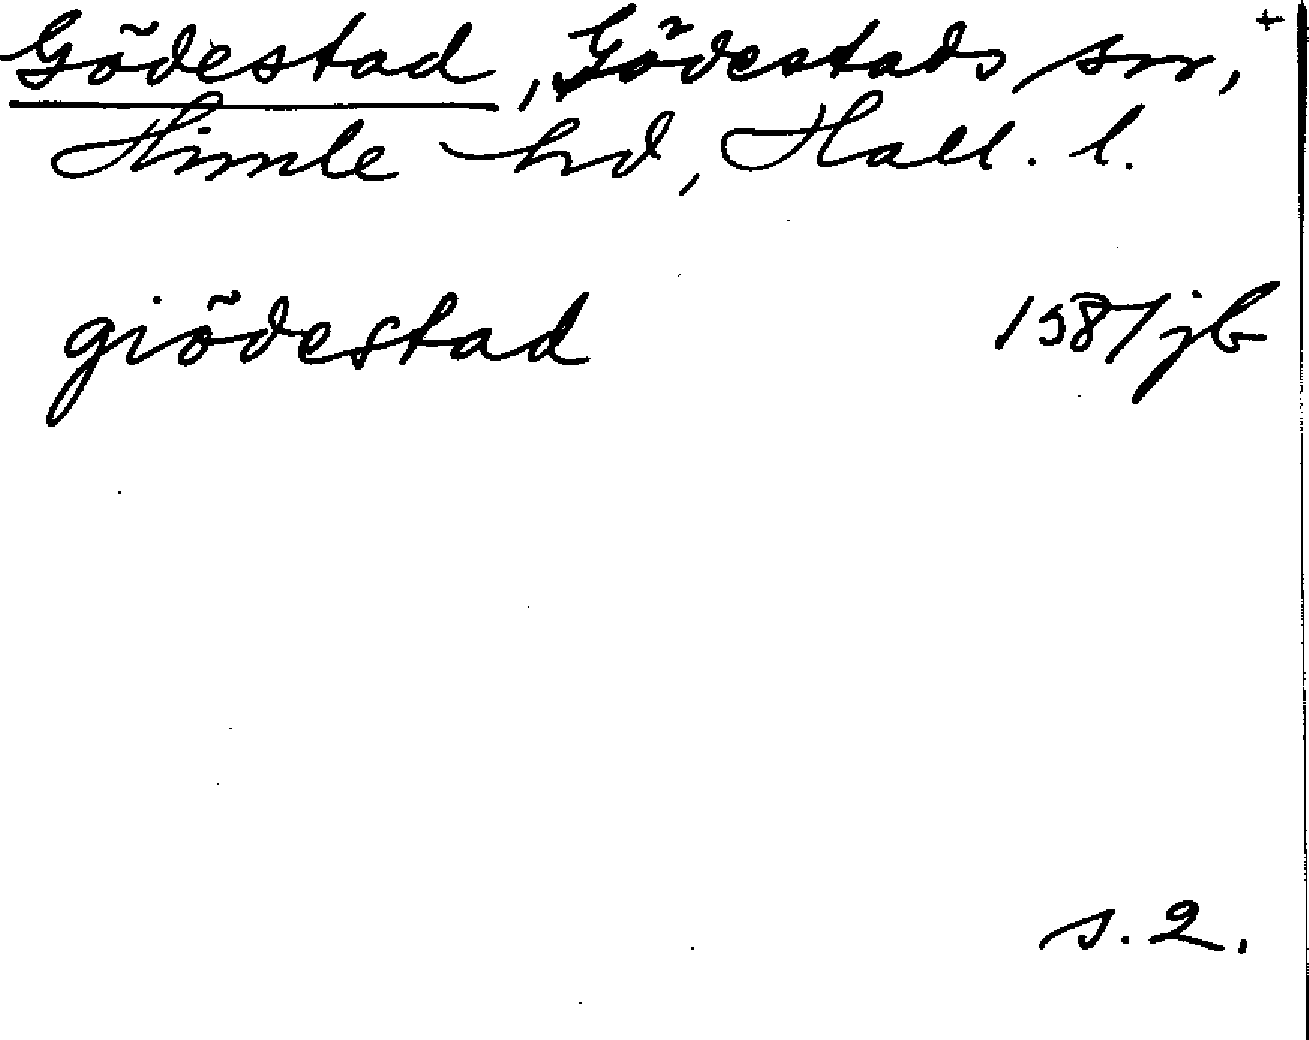 Gödestad, Gödestads sn, +
Himle hd, Hall. l.
giödestad 1587 jb
s. 2.